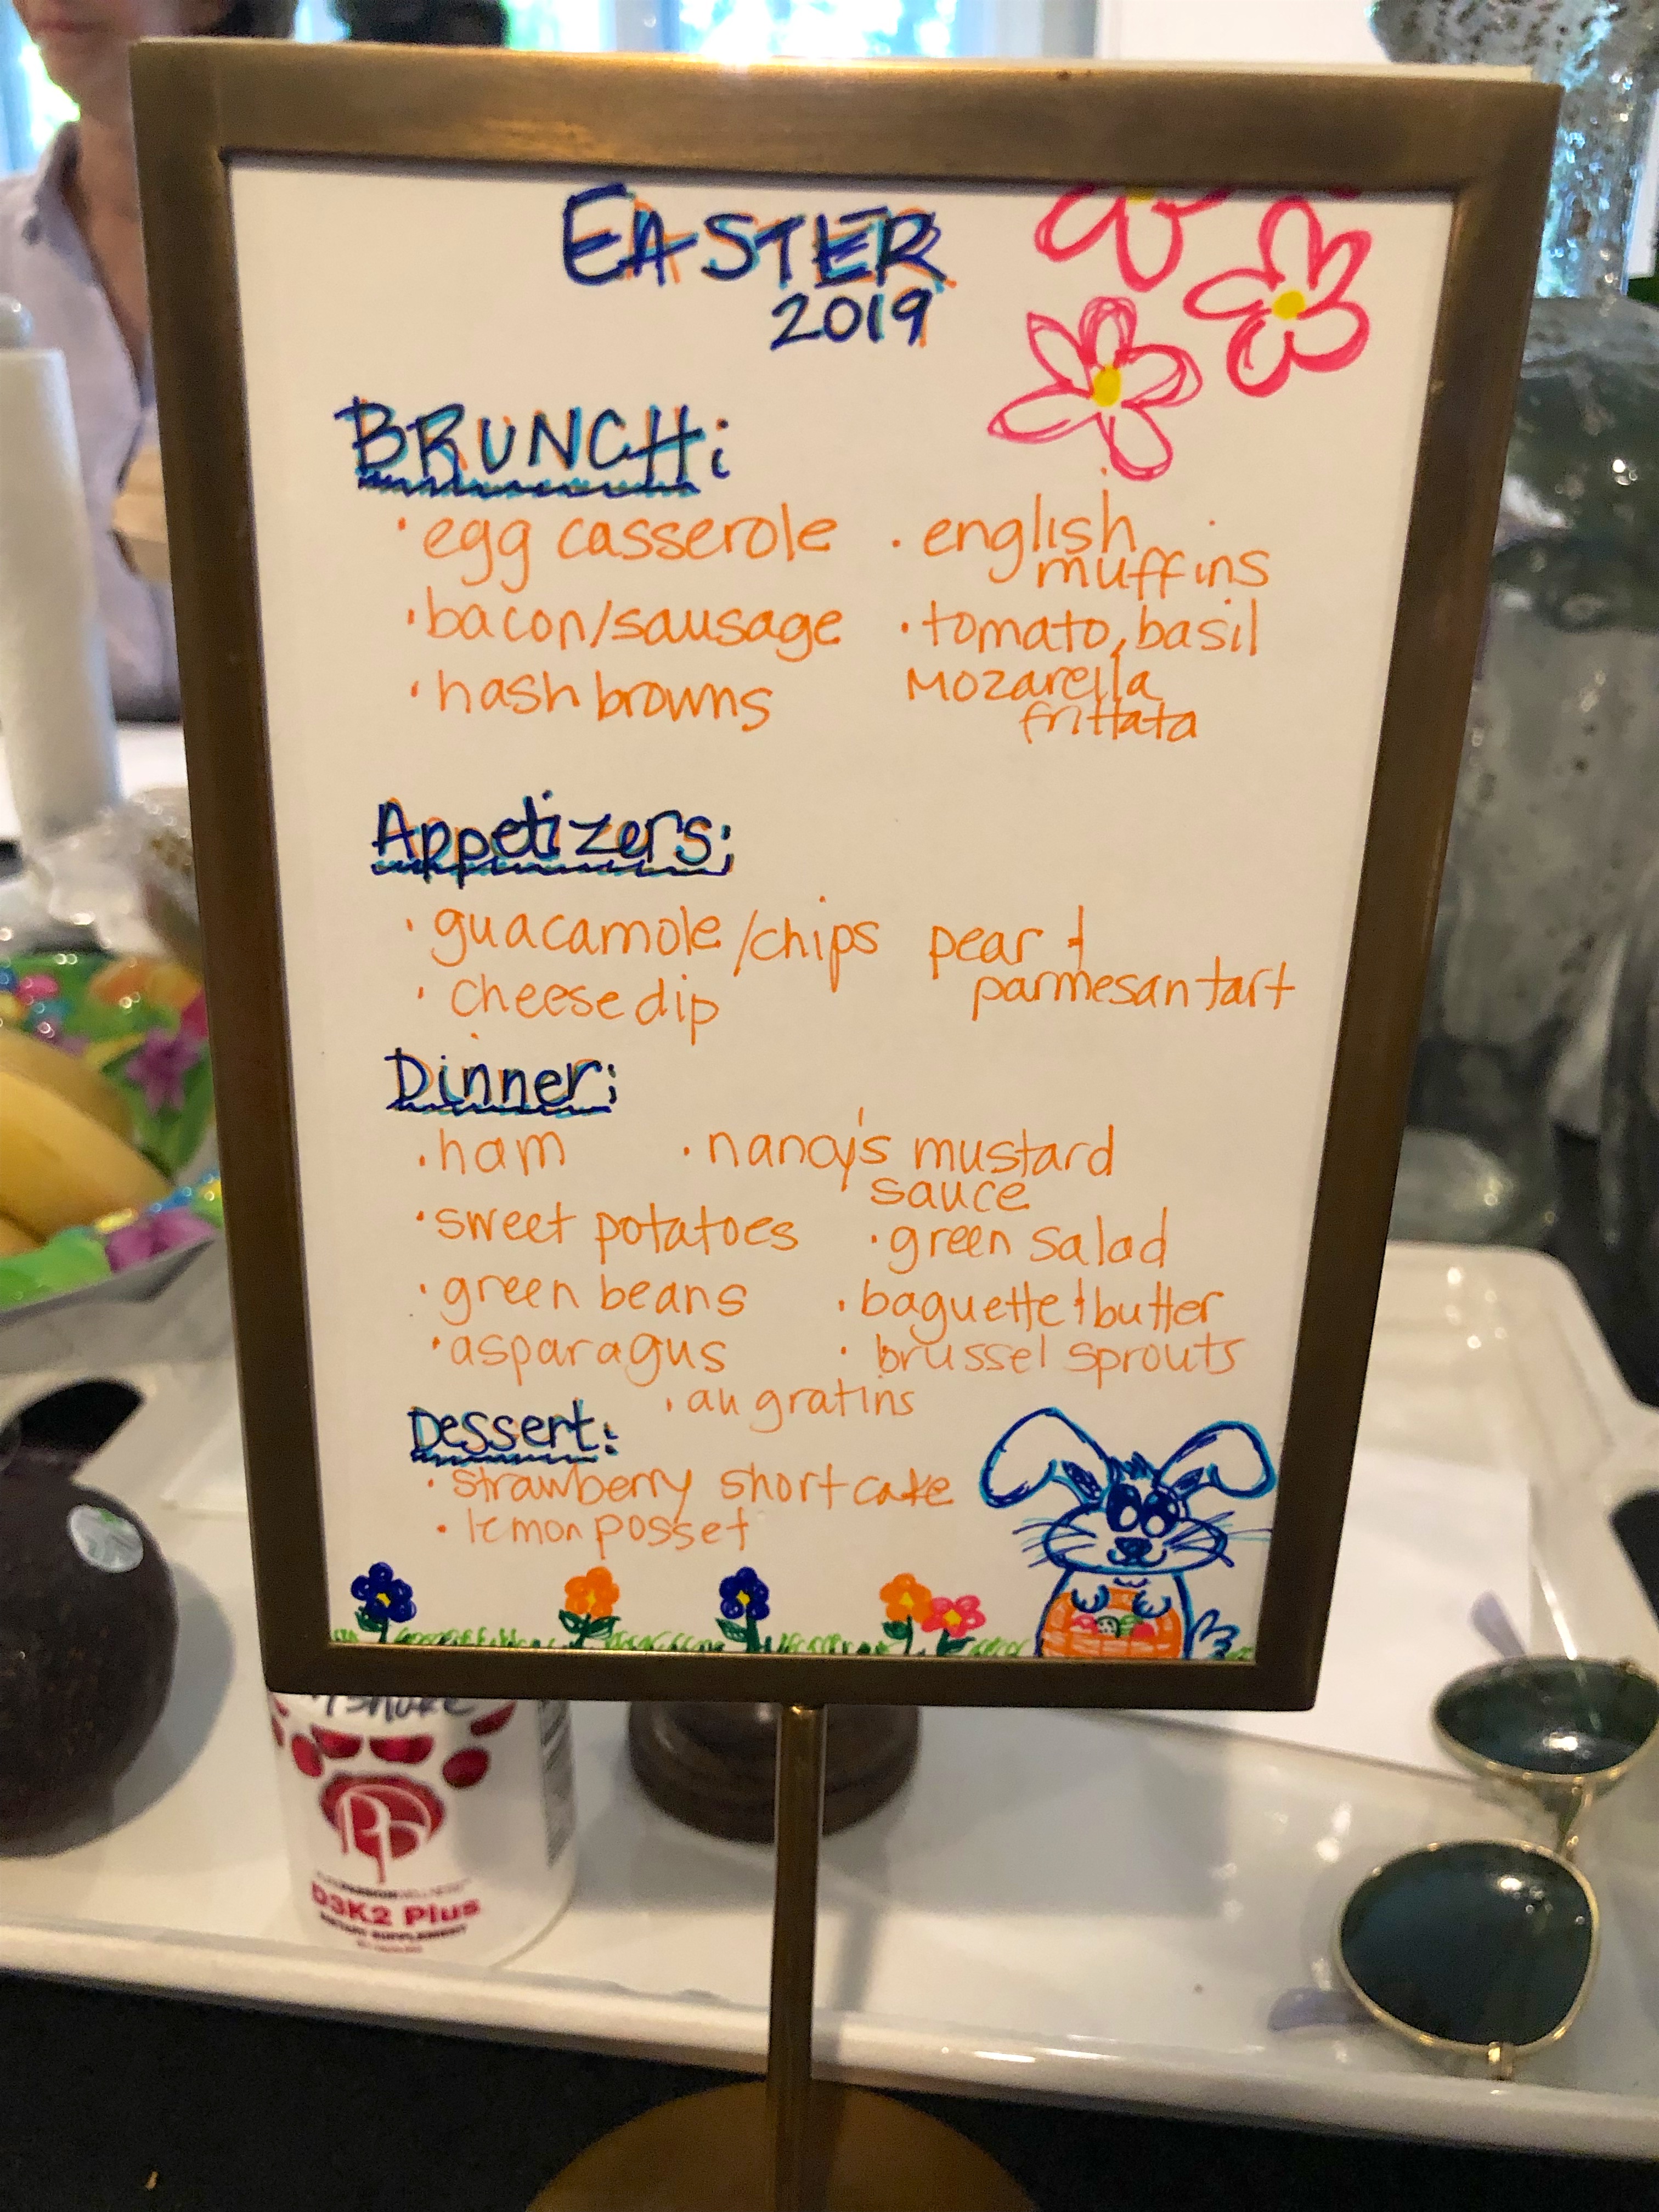 EASTER
2019
BRUNCH:
· egg casserole
· bacon/sausage
· hash browns
· english
muffins
· tomato, basil
mozarella
frittata
Appetizers:
· guacamole/chips
· cheese dip
pear &
parmesan tart
Dinner:
· ham
· sweet potatoes
· green beans
· asparagus
· nancy's mustard
sauce
· green salad
· baguette & butter
· brussel sprouts
· au gratins
Dessert:
· strawberry shortcake
· lemon posset
D3K2 Plus
DIETARY SUPPLEMENT